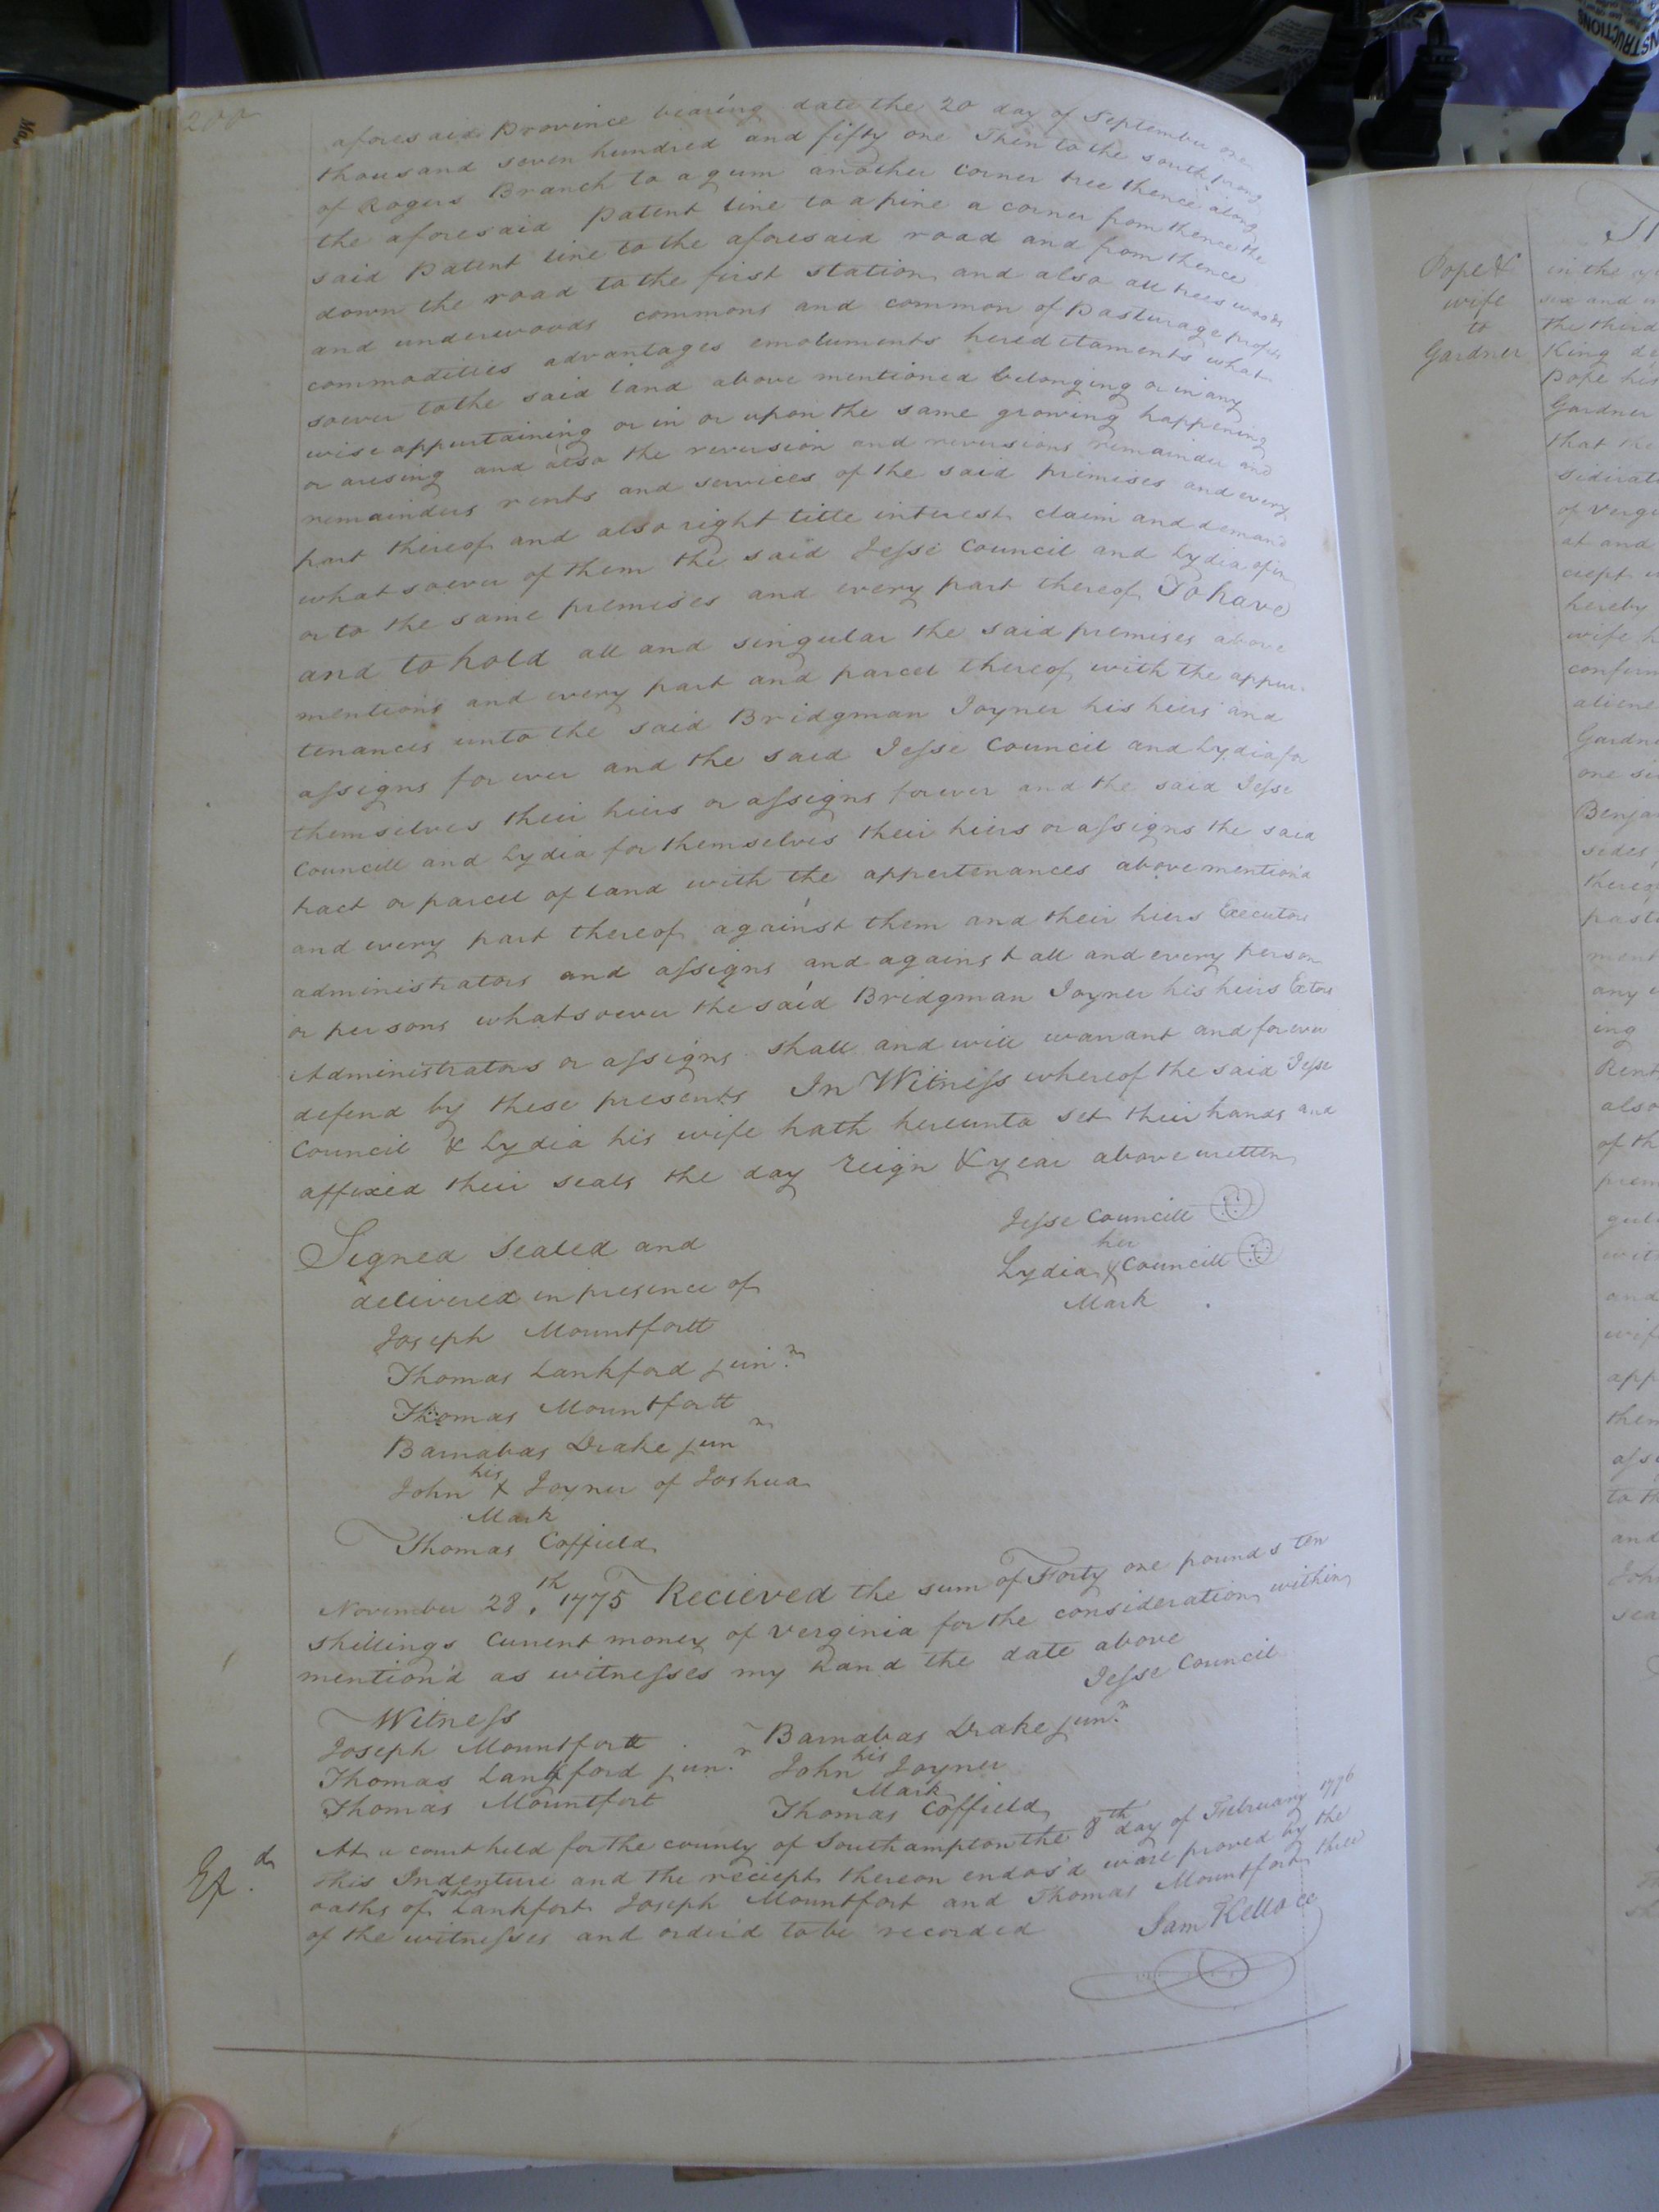 200
aforesaid Province bearing date the 20 day of September one
thousand seven hundred and fifty one Then to the south prong
of Rogers Branch to a gum another corner tree thence along
the aforesaid Patent line to a pine a corner from thence the
said Patent line to the aforesaid road and from thence
down the road to the first station and also all trees woods
and underwoods commons and common of Pasturage profits
commodities advantages emoluments hereditaments what
soever to the said land above mentioned belonging or in any
wise appurtaining or in or upon the same growing happening
or arising and also the reversion and reversions remainder and
remainders rents and services of the said premises and every
part thereof and also right title interest claim and demand
whatsoever of them the said Jesse Council and Lydia of in
or to the same premises and every part thereof To have
and to hold all and singular the said premises above
mentions and every part and parcel thereof with the appur-
tenances unto the said Bridgman Joyner his heirs and
assigns for ever and the said Jesse Council and Lydia for
themselves their heirs or assigns forever and the said Jesse
Councill and Lydia for themselves their heirs or assigns the said
tract or parcel of land with the appertenances above mention'd
and every part thereof against them and their heirs Executors
administrators and assigns and against all and every person
or persons whatsoever the said Bridgman Joyner his heirs Extors
Administrators or assigns shall and will warrant and forever
defend by these presents In Witness whereof the said Jesse
Council & Lydia his wife hath hereunto set their hands and
affixed their seals the day reign & year above written
Jesse Councill
her
Lydia X Councill
Mark
Signed Sealed and
delivered in presence of
Joseph Mountfortt
Thomas Lankford junr
Thomas Mountfortt
Barnabas Drake junr
his
John X Joyner of Joshua
Mark
Thomas Coffield
November 28th, 1775 Recieved the sum of Forty one pounds ten
shillings Current money of Verginia for the consideration within
mention'd as witnesses my hand the date above
Jesse Council
Witness
Joseph Mountfortt
Thomas Lankford junr
Thomas Mountfort
Barnabas Drake junr
his
John Joyner
Mark
Thomas Coffield
At a court held for the county of Southampton the 8th day of February 1776
This Indenture and the reciept thereon endors'd ware proved by the
oaths of Thos Lankfort Joseph Mountfort and Thomas Mountfort three
of the witnesses and order'd to be recorded
Sam Kelloce
Exd
Pope &
wife
to
Gardner
in the
six and
the third
King
Pope his
Gardner
that the
of
at and
hereby
wife
Gardn
one
Benja
sides
any
ing
Rent
also
of th
prem
and
app
them
to th
and
John